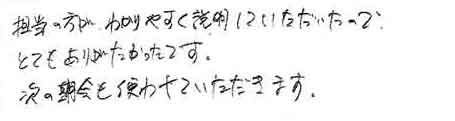 担当の方が、わかりやすく説明していただいたので、
とてもありがたかったです。
次の機会も使わせていただきます。